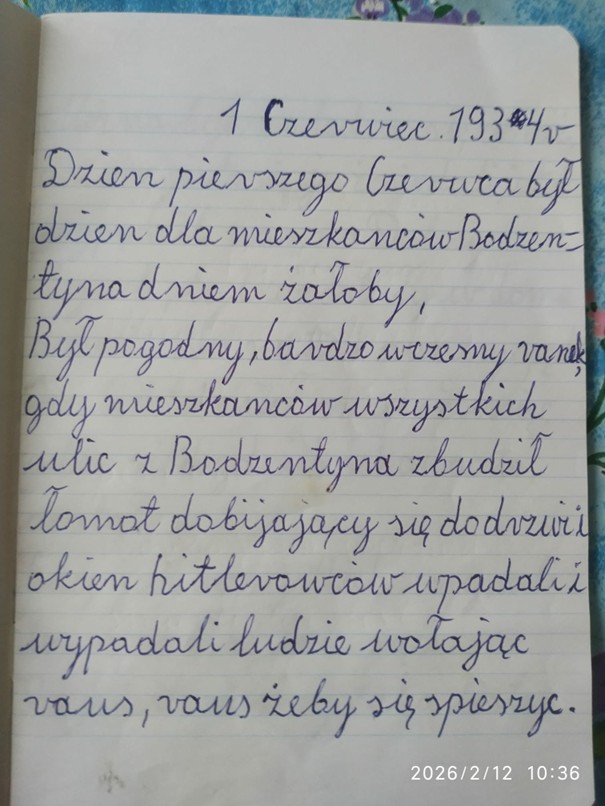 1 Czerwiec. 1934r
Dzien pierwszego Czerwca był
dzien dla mieszkanców Bodzen=
tyna dniem żałoby,
Był pogodny, bardzo wczesny ranek,
gdy mieszkanców wszystkich
ulic z Bodzentyna zbudził
łomot dobijający się do drzwi i
okien hitlerowców wpadali i
wypadali ludzie wołając
raus, raus żeby się spieszyc.
2026/2/12 10:36